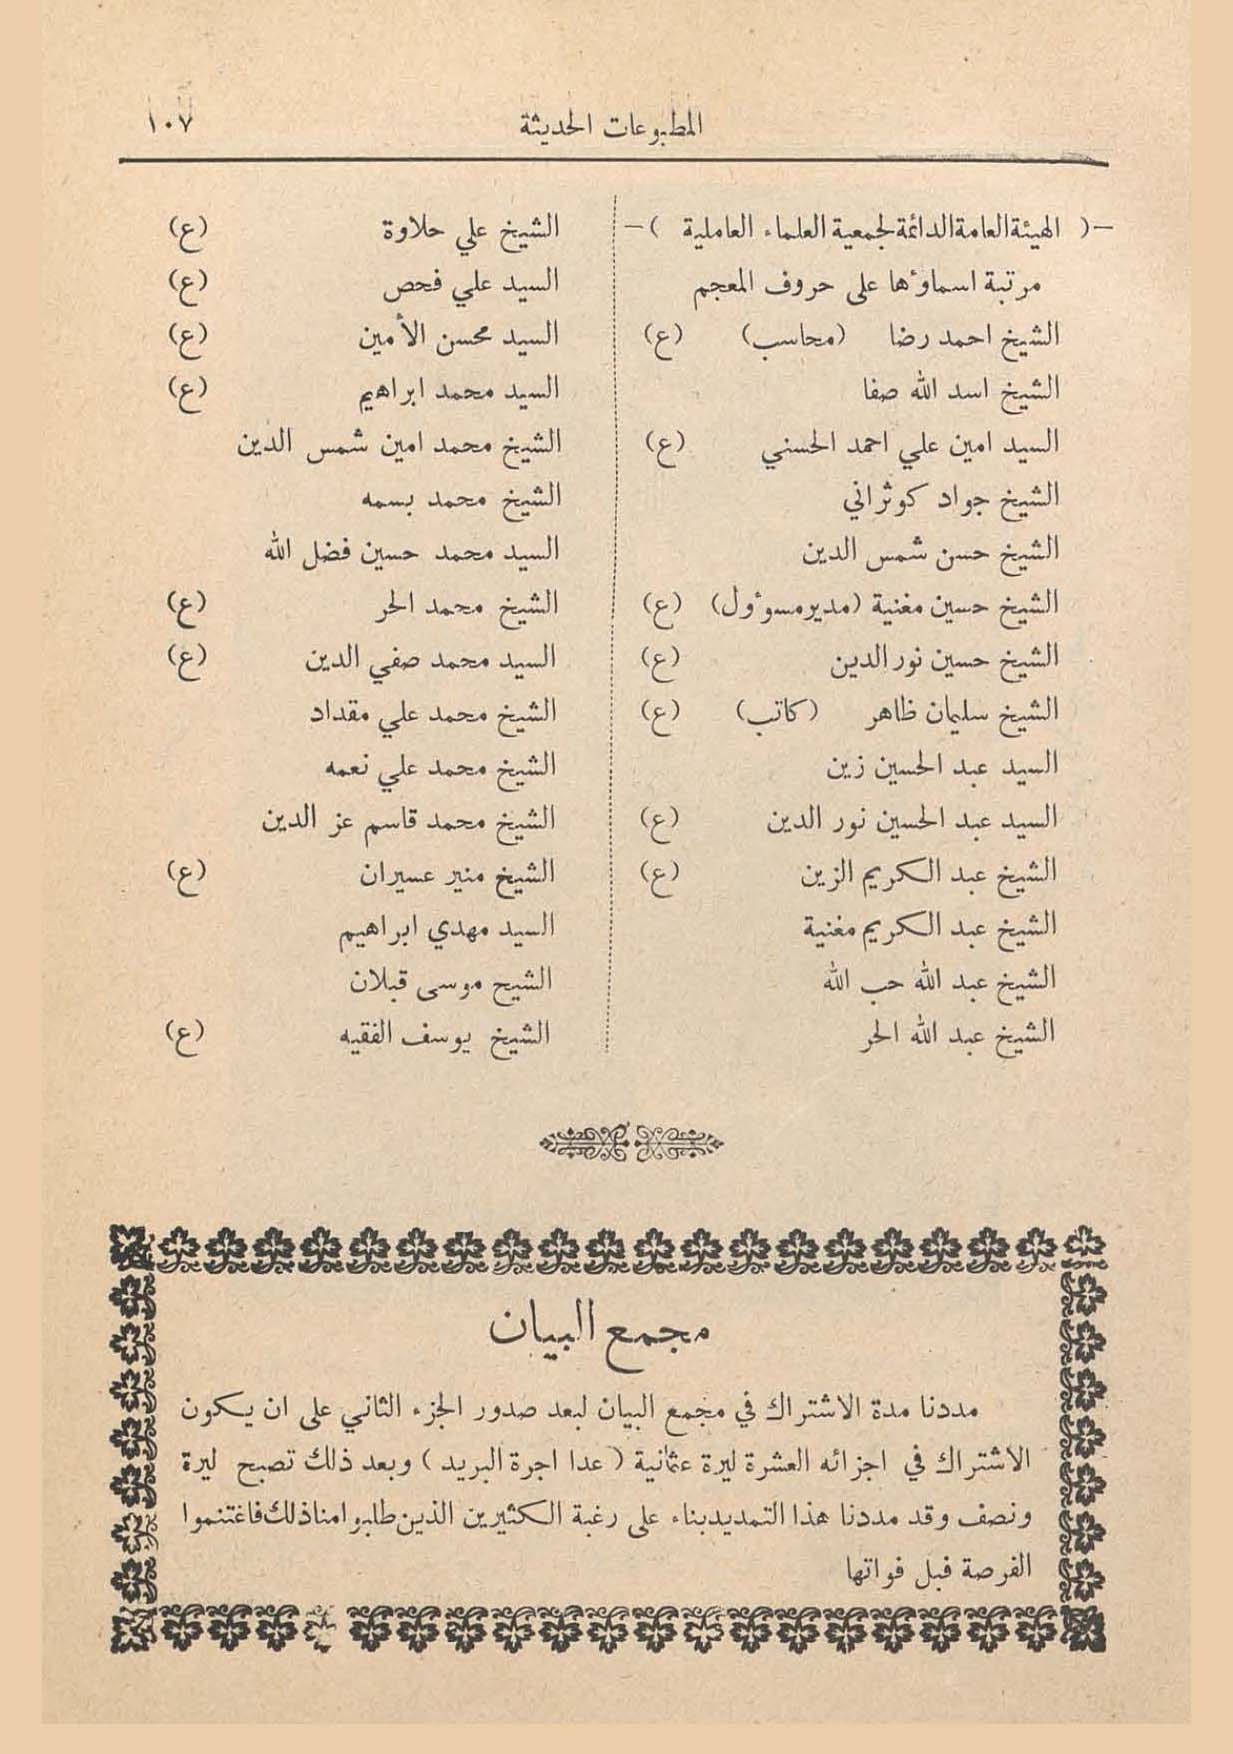 المطبوعات الحديثة ١٠٧
-( الهيئة العامة الدائمة لجمعية العلماء العاملية )-
مرتبة اسماؤها على حروف المعجم
الشيخ احمد رضا (محاسب) (ع)
الشيخ اسد الله صفا
السيد امين علي احمد الحسني (ع)
الشيخ جواد كوثراني
الشيخ حسن شمس الدين
الشيخ حسين مغنية (مدير مسوؤل) (ع)
الشيخ حسين نور الدين (ع)
الشيخ سليمان ظاهر (كاتب) (ع)
السيد عبد الحسين زين
السيد عبد الحسين نور الدين (ع)
الشيخ عبد الكريم الزين (ع)
الشيخ عبد الكريم مغنية
الشيخ عبد الله حب الله
الشيخ عبد الله الحر
الشيخ علي حلاوة (ع)
السيد علي فحص (ع)
السيد محسن الأمين (ع)
السيد محمد ابراهيم (ع)
الشيخ محمد امين شمس الدين
الشيخ محمد بسمه
السيد محمد حسين فضل الله
الشيخ محمد الحر (ع)
السيد محمد صفي الدين (ع)
الشيخ محمد علي مقداد
الشيخ محمد علي نعمه
الشيخ محمد قاسم عز الدين
الشيخ منير عسيران (ع)
السيد مهدي ابراهيم
الشيح موسى قبلان
الشيخ يوسف الفقيه (ع)
مجمع البيان
مددنا مدة الاشتراك في مجمع البيان لبعد صدور الجزء الثاني على ان يكون
الاشتراك في اجزائه العشرة ليرة عثمانية ( عدا اجرة البريد ) وبعد ذلك تصبح ليرة
ونصف وقد مددنا هذا التمديد بناء على رغبة الكثيرين الذين طلبوا منا ذلك فاغتنموا
الفرصة قبل فواتها